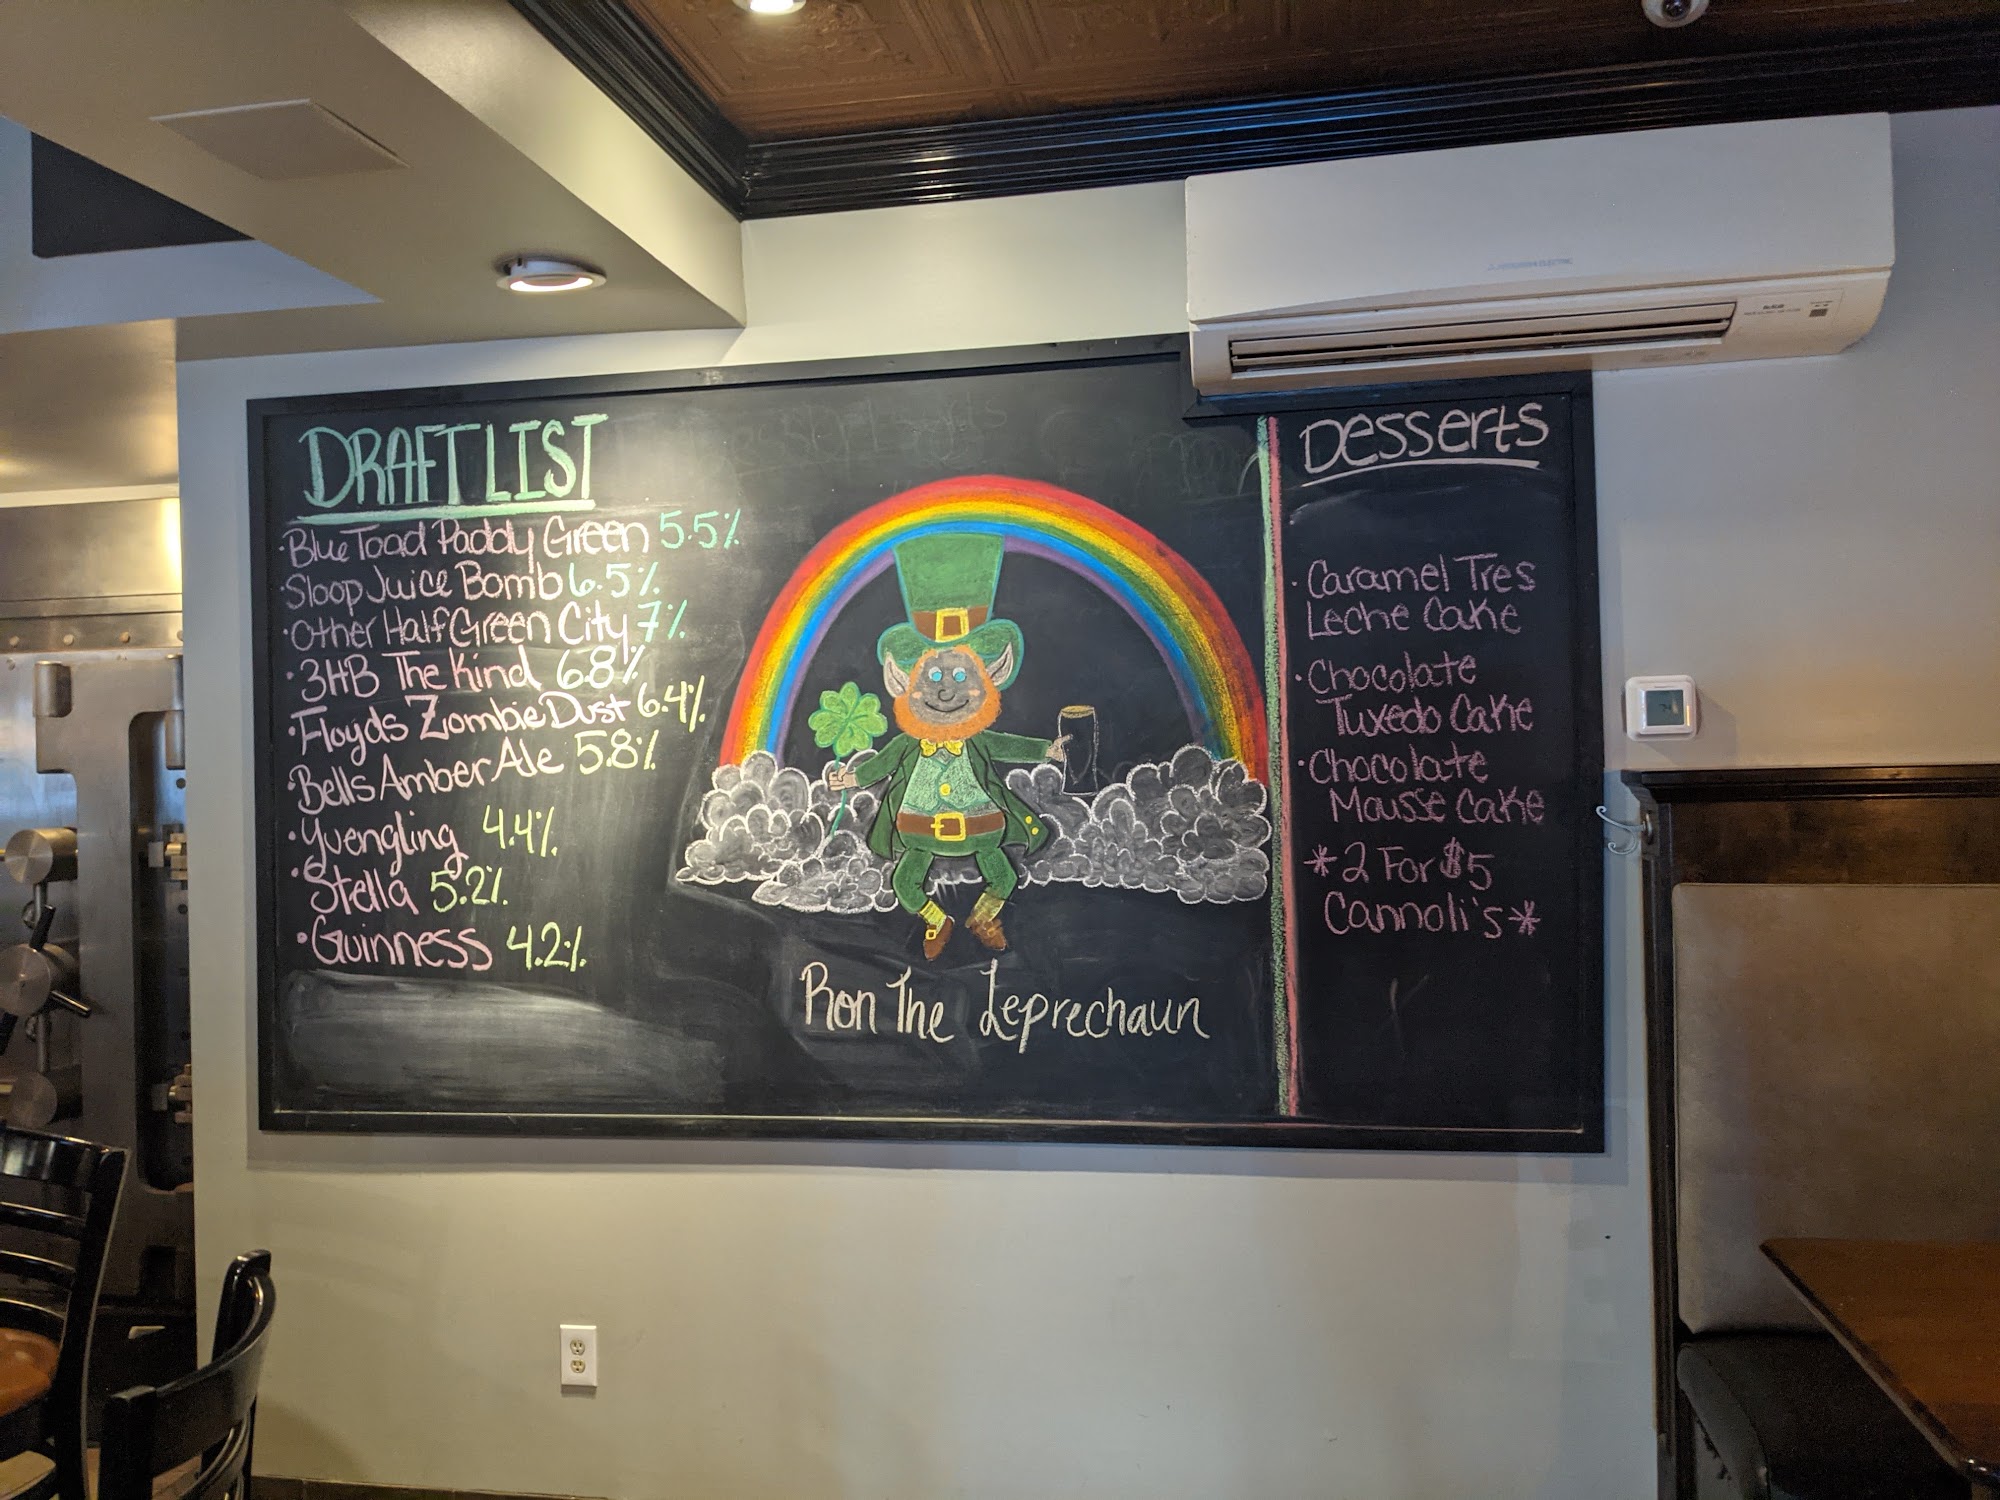 DRAFT LIST
·Blue Toad Paddy Green 5.5%
·Sloop Juice Bomb 6.5%
·Other Half Green City 7%
·3HB The Kind 6.8%
·Floyds Zombie Dust 6.4%
·Bells Amber Ale 5.8%
·Yuengling 4.4%
·Stella 5.2%
·Guinness 4.2%
Ron The Leprechaun
Desserts
·Caramel Tres
Leche Cake
·Chocolate
Tuxedo Cake
·Chocolate
Mousse Cake
*2 For $5
Cannoli's*
MITSUBISHI ELECTRIC